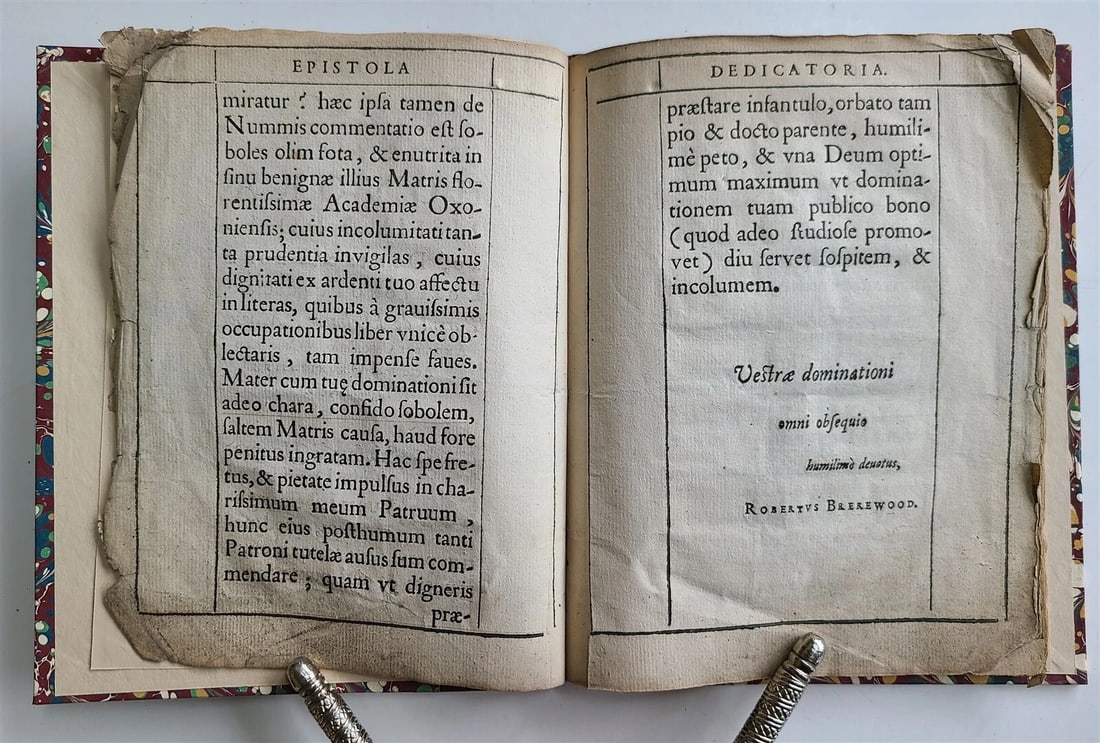 EPISTOLA
miratur ? hæc ipſa tamen de
Nummis commentatio eſt ſo-
boles olim fota, & enutrita in
ſinu benignæ illius Matris flo-
rentiſsimæ Academiæ Oxo-
nienſis; cuius incolumitati tan-
ta prudentia invigilas , cuius
dignitati ex ardenti tuo affectu
in literas, quibus à grauiſsimis
occupationibus liber vnicè ob-
lectaris , tam impenſe faues.
Mater cum tuę dominationi ſit
adeo chara, confido ſobolem,
ſaltem Matris cauſa, haud fore
penitus ingratam. Hac ſpe fre-
tus, & pietate impulſus in cha-
riſsimum meum Patruum ,
hunc eius poſthumum tanti
Patroni tutelæ auſus ſum com-
mendare ; quam vt digneris
præ-
DEDICATORIA.
præſtare infantulo, orbato tam
pio & docto parente , humili-
mè peto, & vna Deum opti-
mum maximum vt domina-
tionem tuam publico bono
(quod adeo ſtudioſe promo-
vet) diu ſervet ſoſpitem, &
incolumem.
Veſtræ dominationi
omni obſequio
humilimè deuotus,
ROBERTVS BREREWOOD.